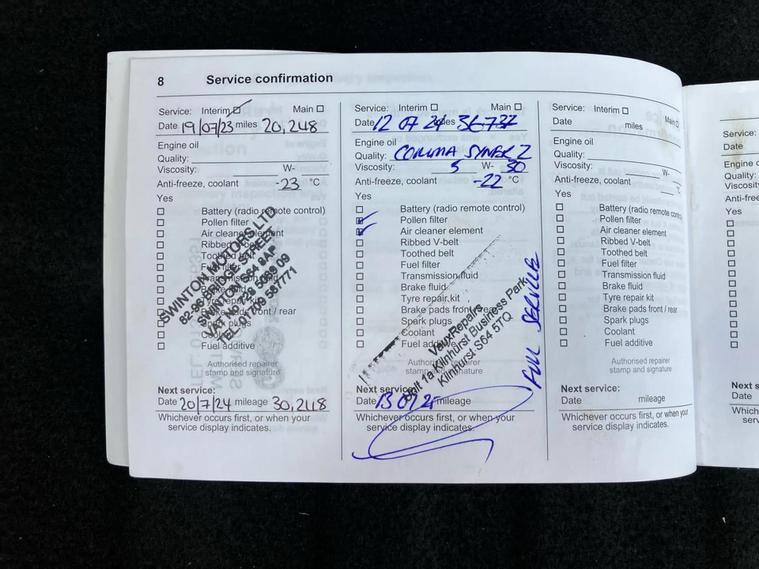 8 Service confirmation
Service: Interim Main
Date 19/07/23 miles 20,248
Engine oil
Quality:
Viscosity: W-
Anti-freeze, coolant -23 °C
Yes
Battery (radio remote control)
Pollen filter
Air cleaner element
Ribbed
Fuel additive
SWINTON MOTORS LTD
82-96 BRIDGE STREET
SWINTON S64 8AP
Authorised repairer
stamp and signature
Next service:
Date 20/7/24 mileage 30,248
Whichever occurs first, or when your
service display indicates.
Service: Interim Main
Date 12 07 24
Engine oil
Quality: COMMA
Viscosity: 5 W- 30
Anti-freeze, coolant -22 °C
Yes
Battery (radio remote control)
Pollen filter
Air cleaner element
Ribbed V-belt
Toothed belt
Fuel filter
Transmission fluid
Brake fluid
Tyre repair kit
Brake pads front/rear
Spark plugs
Coolant
Fuel additive
VauxRepairs
Unit 1a Kilnhurst Business Park
Kilnhurst S64 5TQ
FULL SERVICE
Authorised repairer
stamp and signature
Next service:
Date mileage
Whichever occurs first, or when your
service display indicates.
Service: Interim Main
Date miles
Engine oil
Quality:
Viscosity: W-
Anti-freeze, coolant °C
Yes
Battery (radio remote control)
Pollen filter
Air cleaner element
Ribbed V-belt
Toothed belt
Fuel filter
Transmission fluid
Brake fluid
Tyre repair kit
Brake pads front / rear
Spark plugs
Coolant
Fuel additive
Authorised repairer
stamp and signature
Next service:
Date mileage
Whichever occurs first, or when your
service display indicates.
Service:
Date
Engine
Quality:
Yes
Next
Date